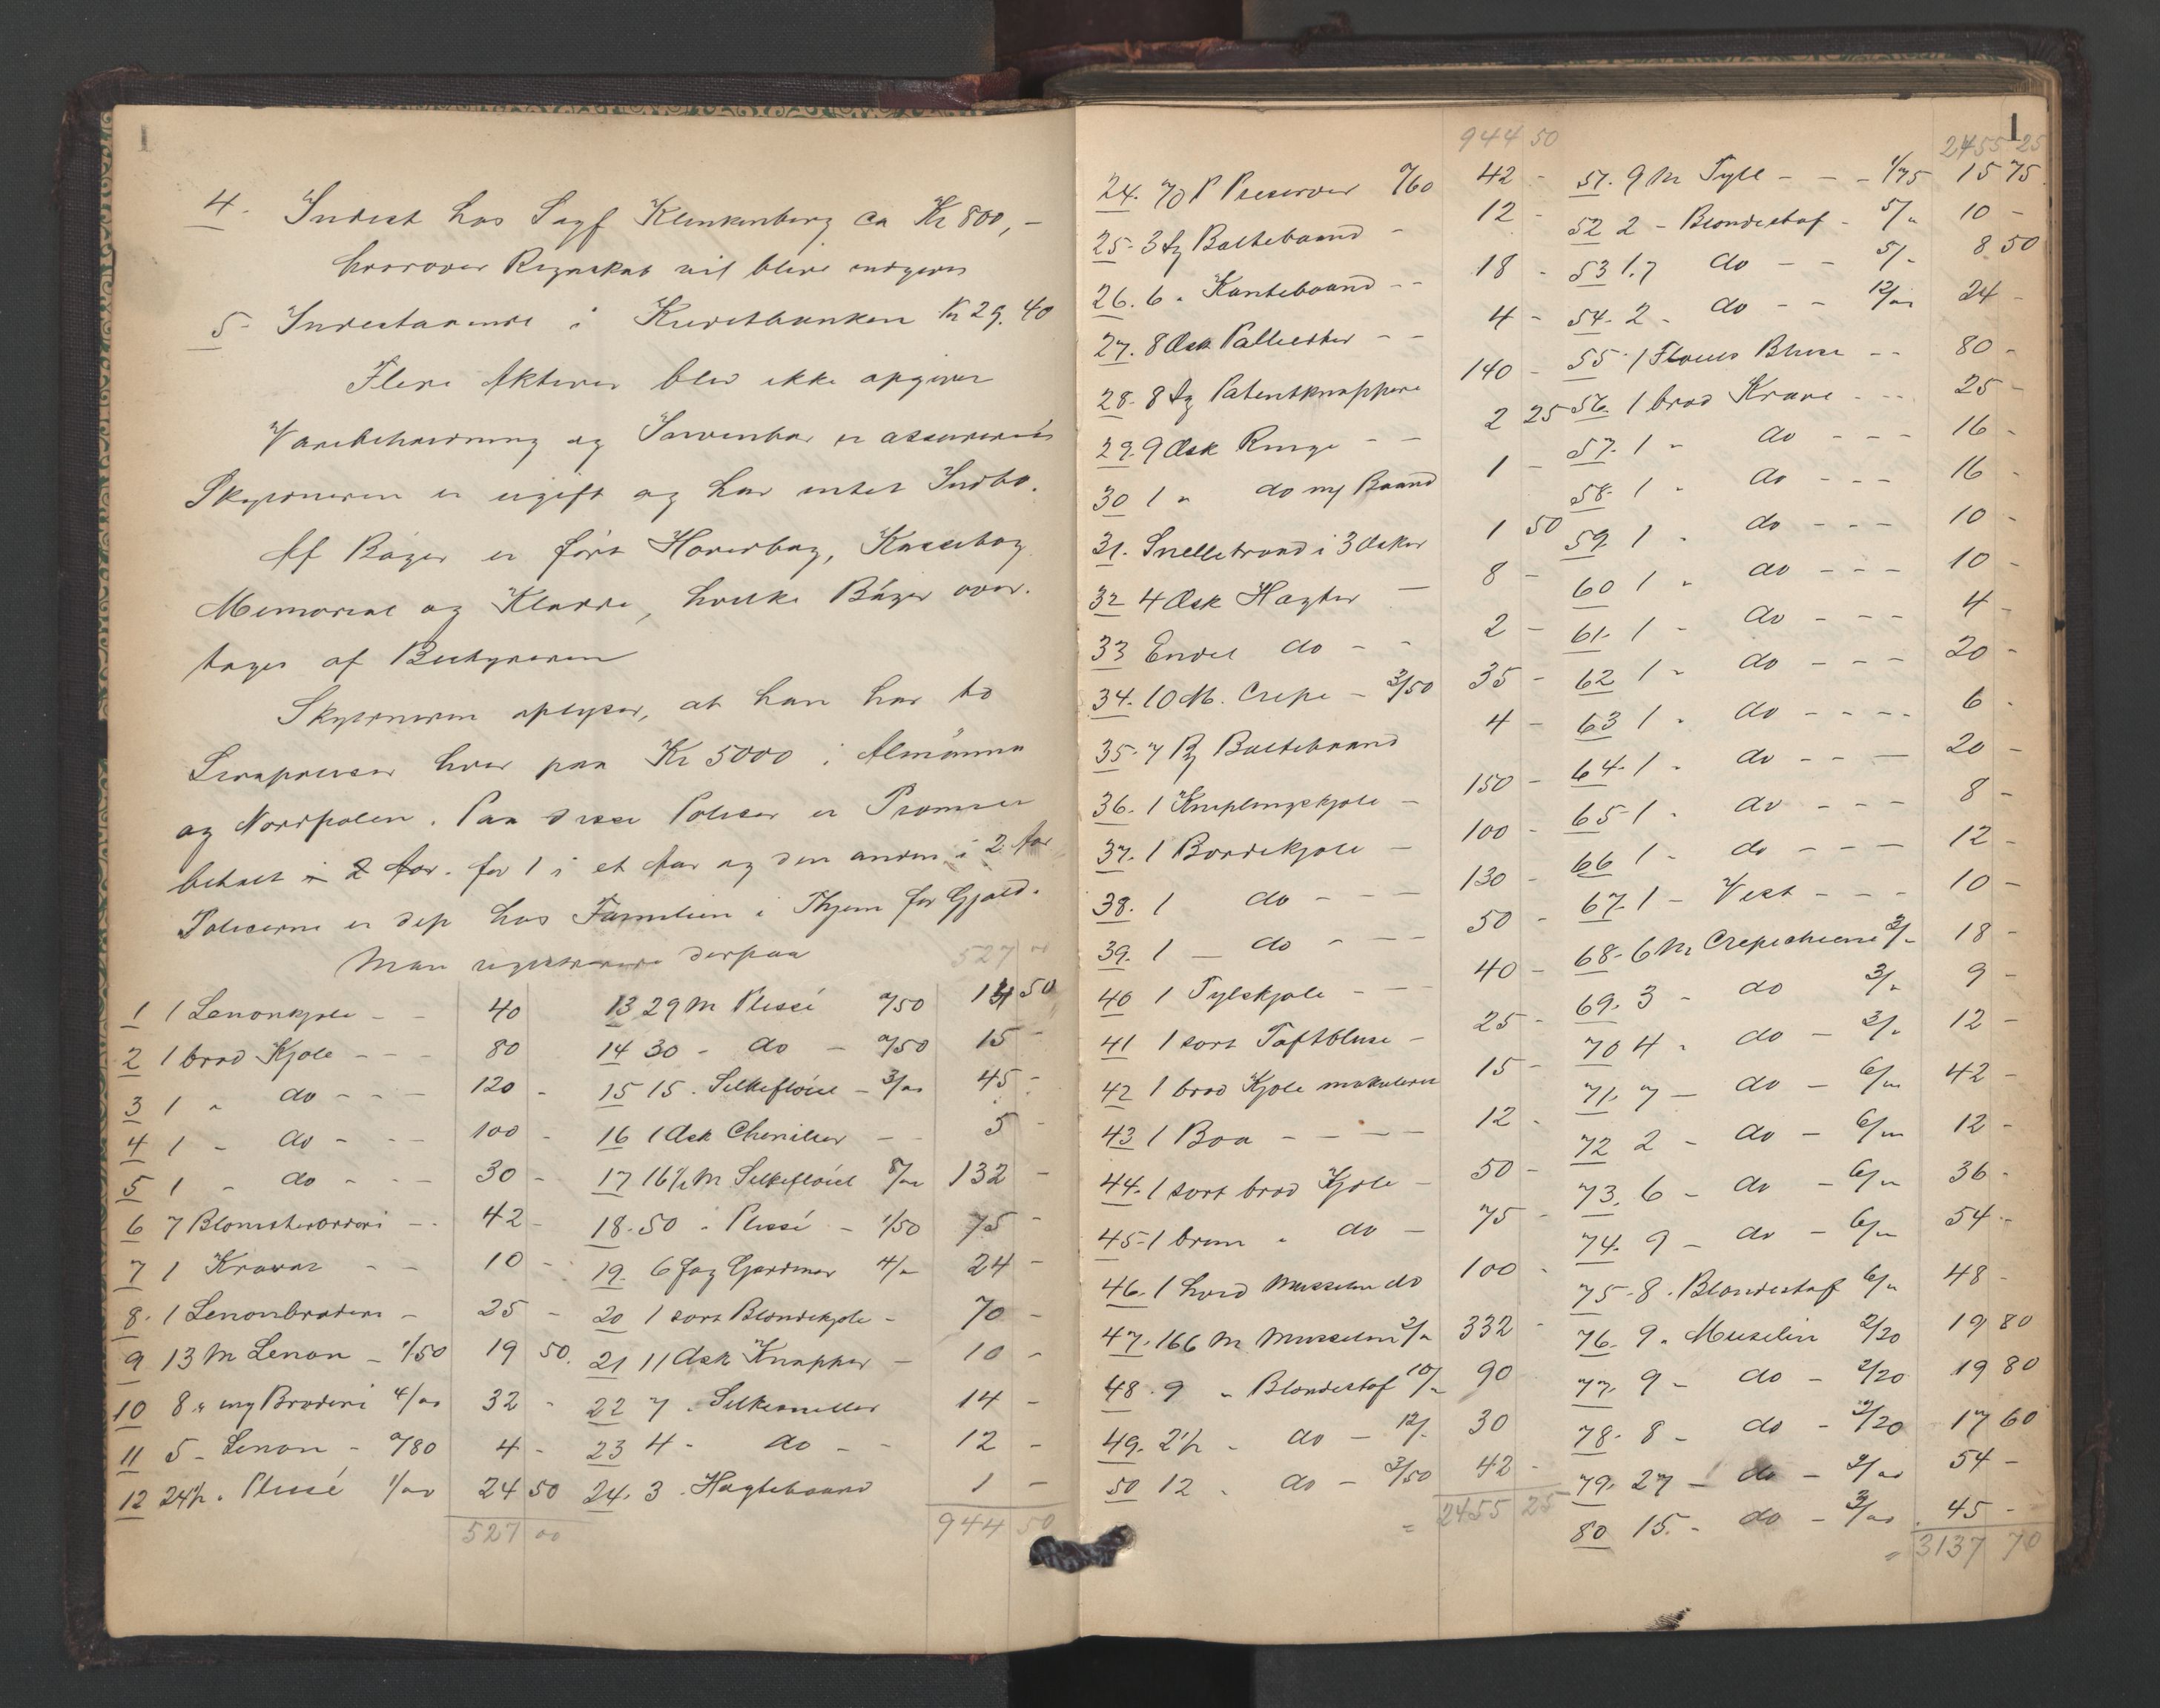 1
4. Indest hos Sagf Klinkenberg ca Kr 800,-
hvorover Regnskab vil blive indgivet
5- Indestaaende i Kreditbanken Kr 29.40
Flere Aktiver blev ikke opgivet
Varebeholdning og Inventar er assureret
Skyldneren er ugift og har intet Indbo.
Af Bøger er ført Hovedbog, Kassebog
Memorial og Kladde, hvilke Bøger over-
tages af Bestyreren
Skyldneren oplyser, at han har to
Livspoliser hver paa Kr 5000 i Almänna
og Nordpolen. Paa disse Poliser er Præmier
betalt i 2 Aar. for 1 i et Aar og den anden i 2 Aar
Poliserne er dep hos Familien i Thjem for Gjæld.
Man registrerede derpaa
527
1 1 Lenonkjole - - 40
2 1 brod Kjole - - - 80
3 1 " do - - - 120 -
4 1 - do - - - 100 -
5 1 - do - - - 30 -
6 7 Blomsterbroderi - - 42 -
7 1 Kravat - - 10 -
8. 1 Lenonbroderi - 25 -
9 13 M Lenon - 1/50 19 50.
10 8 " my Broderi 4/00 32 -
11 5 - Lenon - "/80 4 -
12 24½ " Plissé 1/00 24 50
527 00
13 29 M Plissé "/50 14 50
14 30 - do - "/50 15 -
15 15 . Silkefløiel - 3/00 45 -
16 1 Æsk Cheniller - - 5 -
17 16½ M Silkefløiel 8/00 132 -
18. 50 " Plissé - 1/50 75 -
19. 6 Fag Gardiner 4/" 24 -
20 1 sort Blondekjole - 70 -
21 11 Æsk Knapper - 10 -
22 7 . Silkesneller 14 -
23 4 - do - - 12 -
24. 3 . Hægtebaand 1 -
944 50
1
944 50
24. 70 P Preserver "/60 42 -
25- 3 st Beltebaand - 12 -
26. 6 " Kantebaand - - 18 -
27. 8 Æsk Pallietter - - 4 -
28. 8 st Patentknappere 140 -
29. 9 Æsk Ringe - - 2 25
30 1 " do m/ Baand 1 -
31. Snelletraad i 3 Æsker 1 50
32 4 Æsk Hægter - 8 -
33 Endel do - - 2 -
34. 10 M. Crepe - 3/50 35 -
35- 7 st Beltebaand 4 -
36. 1 Kniplingskjole - 150 -
37. 1 Brodekjole - 100 -
38. 1 do - - - 130 -
39. 1 - do - - - 50 -
40 1 Tylskjole - - - 40 -
41 1 sort Taftbluse - 25 -
42 1 brod Kjole makuleret 15 -
43 1 Boa - - - - 12 -
44. 1 sort brod Kjole - 50 -
45- 1 brun " do - 75 -
46. 1 hvid Musselin do 100 -
47. 166 M Musselin 2/" 332 -
48. 9 " Blondestof 10/" 90
49. 2½ - do - 12/- 30
50 12 " do - 3/50 42 -
= 2455 25
2455 25
51. 9 M Tyll - - - 1/75 15 75
52 2 - Blondestof - 5/" 10 -
53 1.7 do - - 5/- 8 50
54. 2 - do - - 12/00 24 -
55 1 Bluse - - 80 -
56. 1 brod Krave - - - 25 -
57. 1 " do - - - 16 -
58. 1 " do - - - 16 -
59 1 " do - - - 10 -
60 1 " do - - - 10 -
61. 1 - do - - - 4 -
62 1 - do - - - 20 -
63 1 " do - - - - 6 -
64. 1 " do - - - 20 -
65- 1 . do - - - 8 -
66 1 - do - - - 12 -
67. 1 - Vest - - - 10 -
68. 6 M Crepechine 3/- 18 -
69. 3 - do 3/" 9 -
70 4 " do - 3/" 12 -
71. 7 - do - 6/00 42 -
72 2 - do - 6/00 12 -
73. 6 - do - 6/" 36 -
74. 9 - do - 6/" 54 -
75- 8 . Blondestof 6/" 48 -
76. 9 " Muselin 2/20 19 80
77. 9 - do - 2/20 19 80
78. 8 - do - 2/20 17 60
79. 27 - do - 2/00 54 -
80 15. - do - 3/00 45 -
= 3137 70